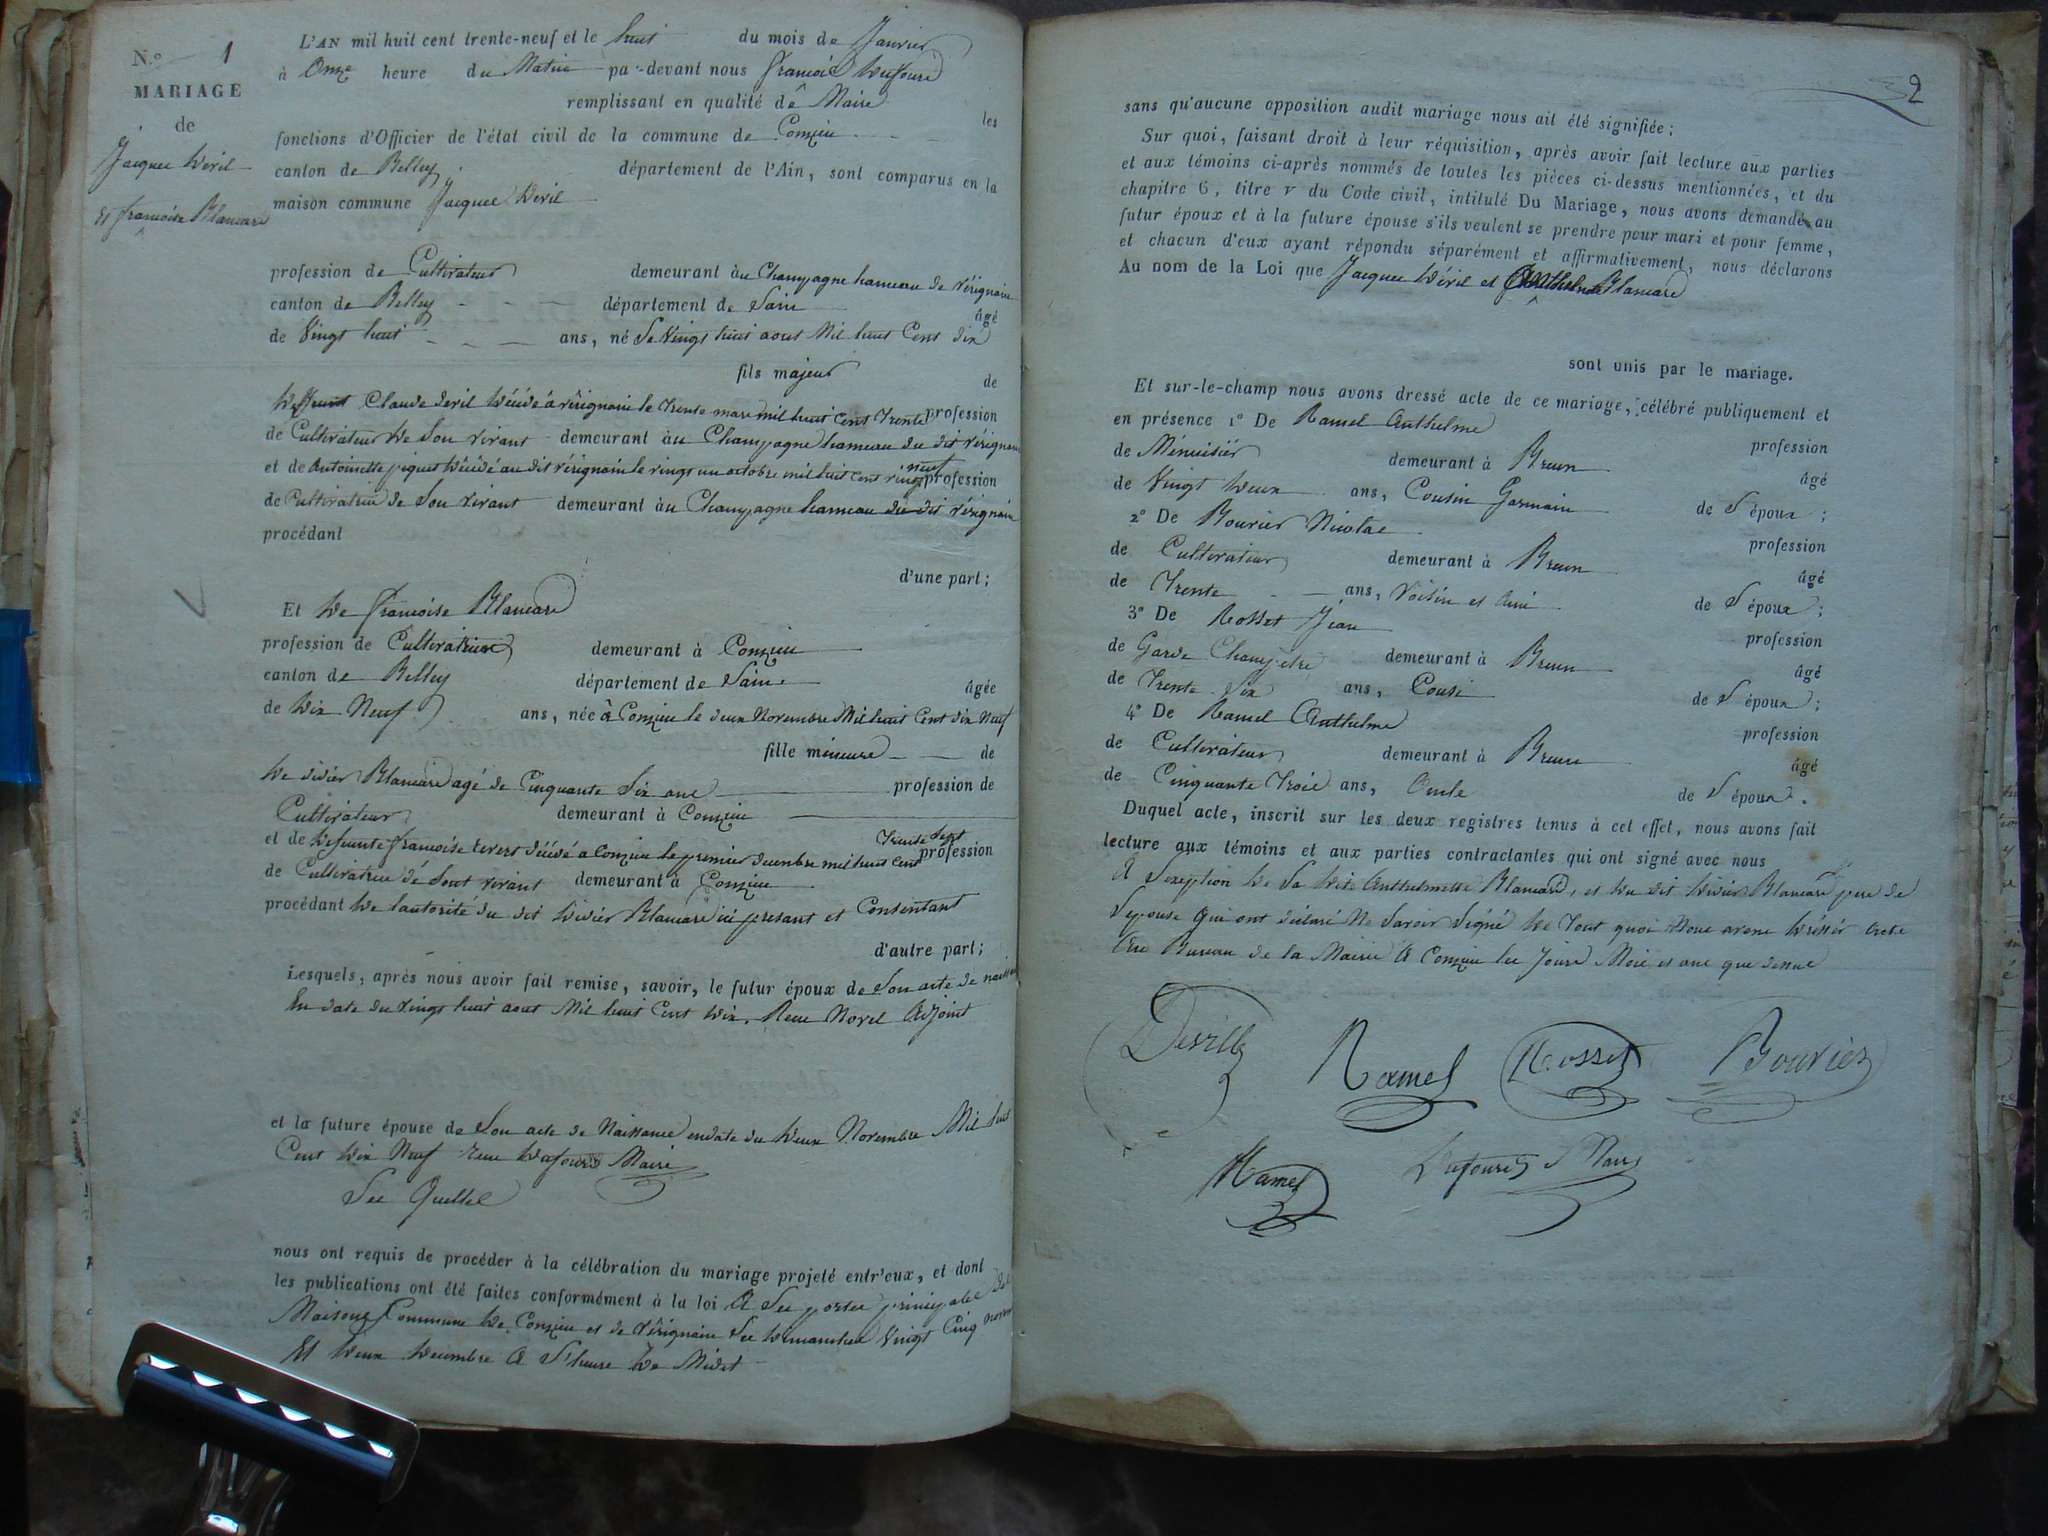 N.º 1
MARIAGE
de
Jacques Devil
Et françoise Blancard
L'AN mil huit cent trente-neuf et le huit du mois de Janvier
à Onze heure du Matin pa-devant nous françois Dufour
remplissant en qualité de Maire les
fonctions d'Officier de l'état civil de la commune de Conzieu
canton de Belley département de l'Ain, sont comparus en la
maison commune Jacques Devil
profession de Cultivateur demeurant àu Champagne hameau de vérignain
canton de Belley département de Lain âgé
de Vingt huit ans, né Le Vingt huit aout Mil huit Cent dix
fils majeur de
Claude devil décédé à vérignain le trente mars mil huit cent trente profession
de Cultivateur de Son vivant demeurant àu Champagne hameau du dit vérignain
et de Antoinette piquet décédé au dit vérignain le vingt un octobre mil huit cent vingt neuf profession
de Cultivatrice de Son vivant demeurant àu Champagne hameau du dit vérignain
procédant
d'une part;
Et de françoise Blancard
profession de Cultivatrice demeurant à Conzieu
canton de Belley département de Lain âgée
de dix Neuf ans, née à Conzieu le deux Novembre Mil huit Cent dix Neuf
fille mineure de
de didier Blancard agé de Cinquante Six ans profession de
Cultivateur demeurant à Conzieu
et de defunte françoise décédé a Conzieu le premier decembre mil huit cent trente Sept profession
de Cultivatrice de Sont vivant demeurant à Conzieu
procédant de l'autorité du dit didier Blancard ici présant et Consentant
d'autre part;
Lesquels, après nous avoir fait remise, savoir, le futur époux de Son acte de naissan
En date du vingt huit aout Mil huit Cent dix. Reçu Novel Adjoint
et la future épouse de Son acte de Naissance en date du deux Novembre Mil huit
Cent dix Neuf reçu Dufour Maire
Les Quelles
nous ont requis de procéder à la célébration du mariage projeté entr'eux, et dont
les publications ont été faites conformément à la loi A Les portes principales des
Maisons Commune de Conzieu et de vérignain Les dimanches Vingt Cinq novem
Et deux decembre A L'heure de Midet
2
sans qu'aucune opposition audit mariage nous ait été signifiée;
Sur quoi, faisant droit à leur réquisition, après avoir fait lecture aux parties
et aux témoins ci-après nommés de toutes les pièces ci-dessus mentionnées, et du
chapitre 6, titre v du Code civil, intitulé Du Mariage, nous avons demandé au
futur époux et à la future épouse s'ils veulent se prendre pour mari et pour femme,
et chacun d'eux ayant répondu séparément et affirmativement, nous déclarons
Au nom de la Loi que Jacques Dévil et Anthelmette Blancard
sont unis par le mariage.
Et sur-le-champ nous avons dressé acte de ce mariage, célébré publiquement et
en présence 1º De Ramel Anthelme profession
de Ménuisier demeurant à Breun âgé
de Vingt deux ans, Cousin Germain de L'époux;
2º De Bouvier Nicolas profession
de Cultivateur demeurant à Breun âgé
de Trente ans, Voisin et Ami de L'époux;
3º De Rosset Jean profession
de Garde Champetre demeurant à Breun âgé
de Trente Six ans, Cousi de L'époux;
4º De Ramel Anthelme profession
de Cultivateur demeurant à Breun âgé
de Cinquante Trois ans, Oncle de L'époux.
Duquel acte, inscrit sur les deux registres tenus à cet effet, nous avons fait
lecture aux témoins et aux parties contractantes qui ont signé avec nous
A L'exeption de La dite Anthelmette Blancard, et du dit didier Blancard pere de
L'epouse Qui ont déclaré Ne Savoir Signé De Tout quoi Nous avons dressér acte
Au Bureau de la Mairie A Conzieu les Jours Mois et ans que dessus
Deville
Ramel
Rosset
Bouvier
Ramel
Dufour Maire